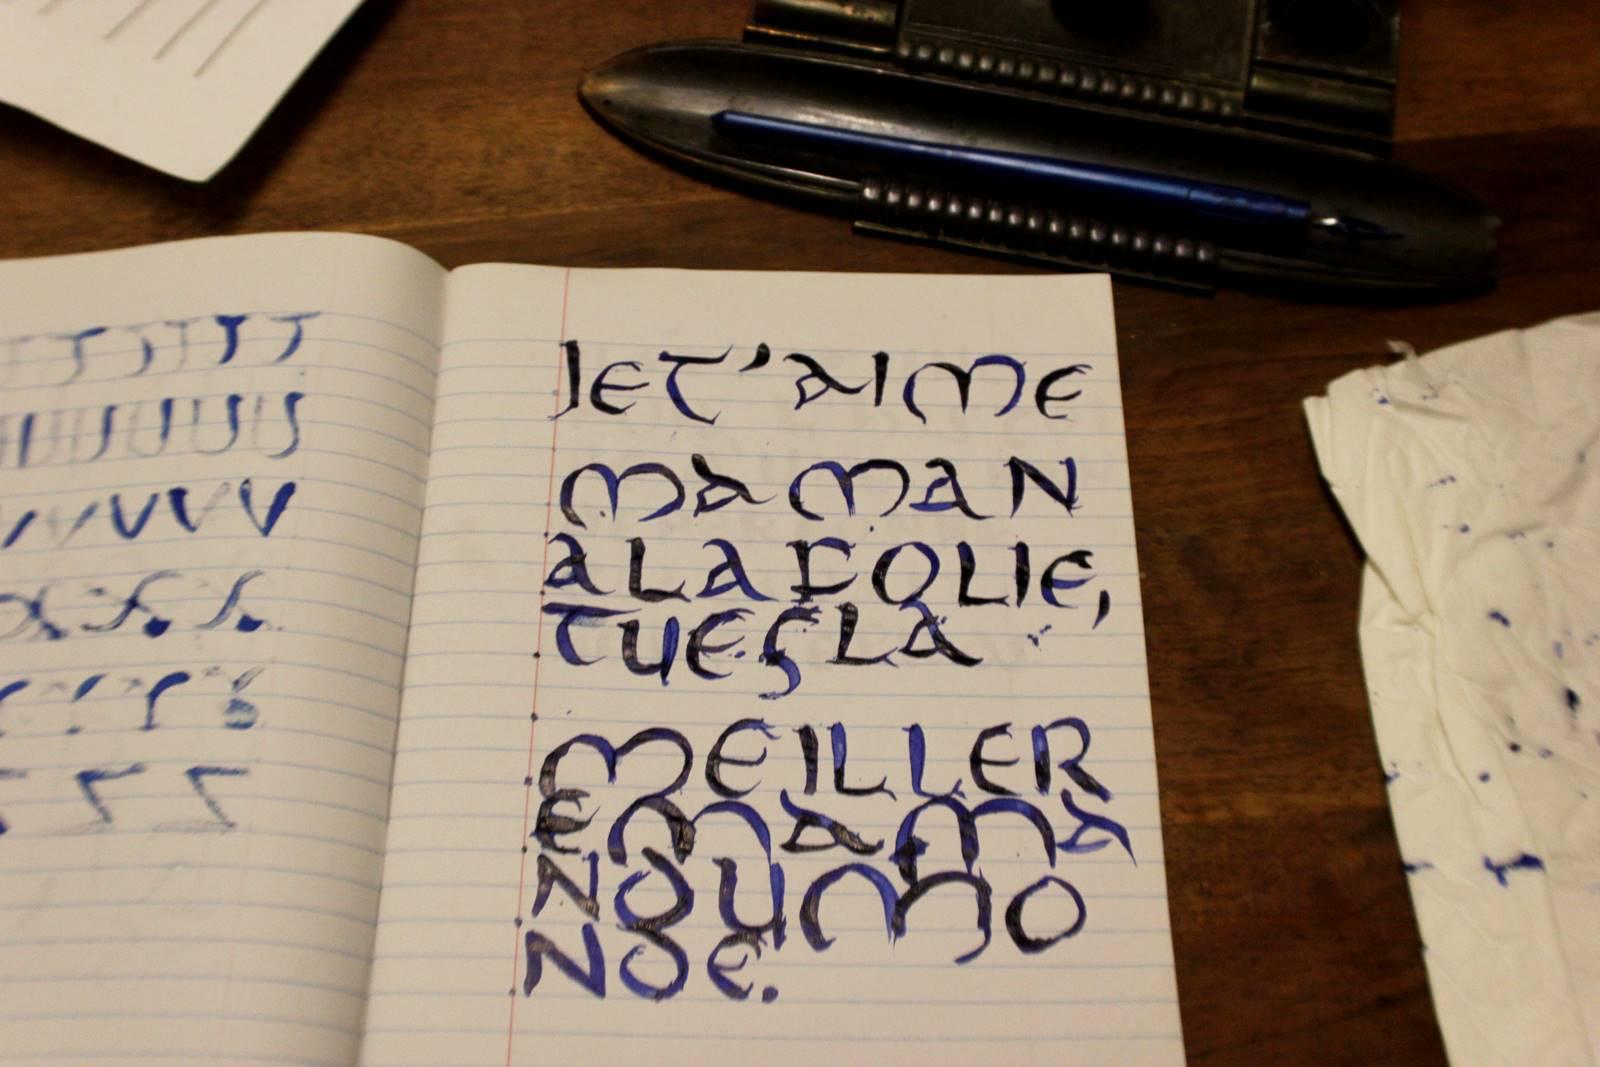 JET'AIME
MAMAN
ALAFOLIE,
TUESLA
MEILLER
EMAMA
NDUMO
NDE.